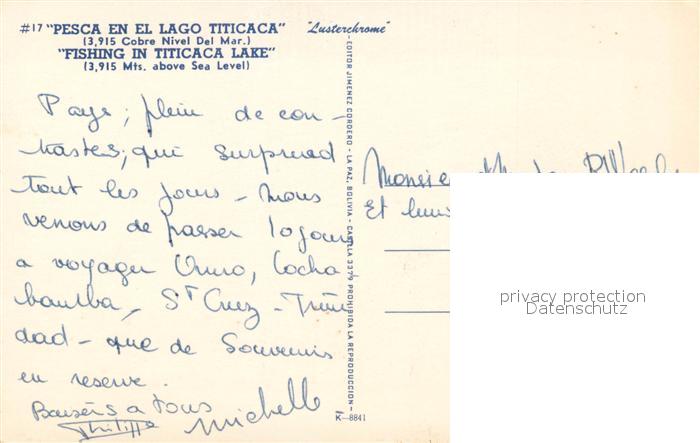 #17 "PESCA EN EL LAGO TITICACA"
(3,915 Cobre Nivel Del Mar.)
"FISHING IN TITICACA LAKE"
(3,915 Mts. above Sea Level)
"Lusterchrome"
Pays, plein de con-
trastes, qui surprend
tout les jours - nous
venons de passer 10 jours
a voyager Oruro, Cocha
bamba, St Cruz - Trini
dad - que de Souvenirs
en reserve.
Baisers a tous
Philippe Michelle
EDITOR JIMENEZ CORDERO - LA PAZ, BOLIVIA - CASILLA 3279 PROHIBIDA LA REPRODUCCION -
K-8841
Monsieur
Et
privacy protection
Datenschutz